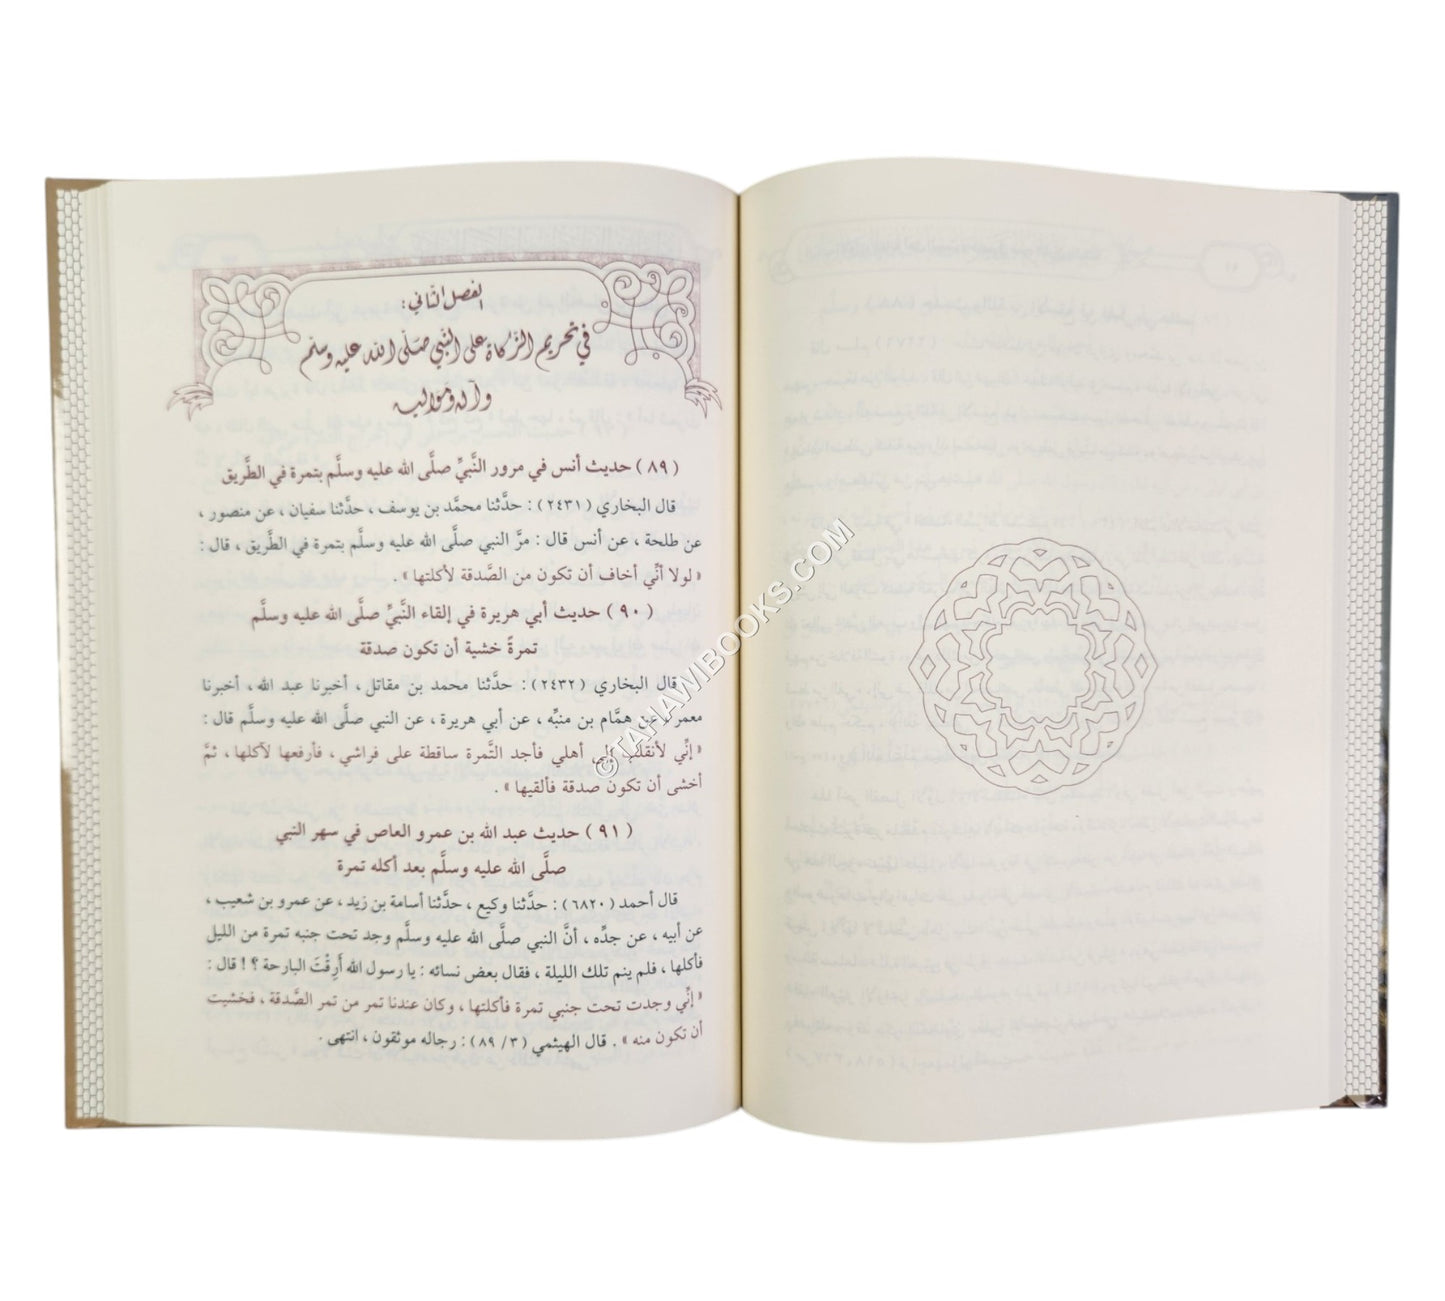 الفصل الثاني:
في تحريم الزكاة على النبي صلى الله عليه وسلم
وآله ومواليه
( ٨٩ ) حديث أنس في مرور النَّبيِّ صلَّى الله عليه وسلَّم بتمرة في الطَّريق
قال البخاري ( ٢٤٣١ ) : حدَّثنا محمَّد بن يوسف ، حدَّثنا سفيان ، عن منصور ،
عن طلحة ، عن أنس قال : مرَّ النبي صلَّى الله عليه وسلَّم بتمرة في الطَّريق ، قال :
« لولا أنِّي أخاف أن تكون من الصَّدقة لأكلتها » .
( ٩٠ ) حديث أبي هريرة في إلقاء النَّبيِّ صلَّى الله عليه وسلَّم
تمرةً خشية أن تكون صدقة
قال البخاري ( ٢٤٣٢ ) : حدَّثنا محمد بن مقاتل ، أخبرنا عبد الله ، أخبرنا
معمر ، عن همَّام بن منبِّه ، عن أبي هريرة ، عن النبي صلَّى الله عليه وسلَّم قال :
« إنِّي لأنقلب إلى أهلي فأجد التَّمرة ساقطة على فراشي ، فأرفعها لآكلها ، ثمَّ
أخشى أن تكون صدقة فألقيها » .
( ٩١ ) حديث عبد الله بن عمرو العاص في سهر النبي
صلَّى الله عليه وسلَّم بعد أكله تمرة
قال أحمد ( ٦٨٢٠ ) : حدَّثنا وكيع ، حدَّثنا أسامة بن زيد ، عن عمرو بن شعيب ،
عن أبيه ، عن جدِّه ، أنَّ النبي صلَّى الله عليه وسلَّم وجد تحت جنبه تمرة من الليل
فأكلها ، فلم ينم تلك الليلة ، فقال بعض نسائه : يا رسول الله أَرِقْتَ البارحة ؟! قال :
« إنِّي وجدت تحت جنبي تمرة فأكلتها ، وكان عندنا تمر من تمر الصَّدقة ، فخشيت
أن تكون منه » . قال الهيثمي ( ٣/ ٨٩ ) : رجاله موثقون ، انتهى .
© TAHAWIBOOKS.COM